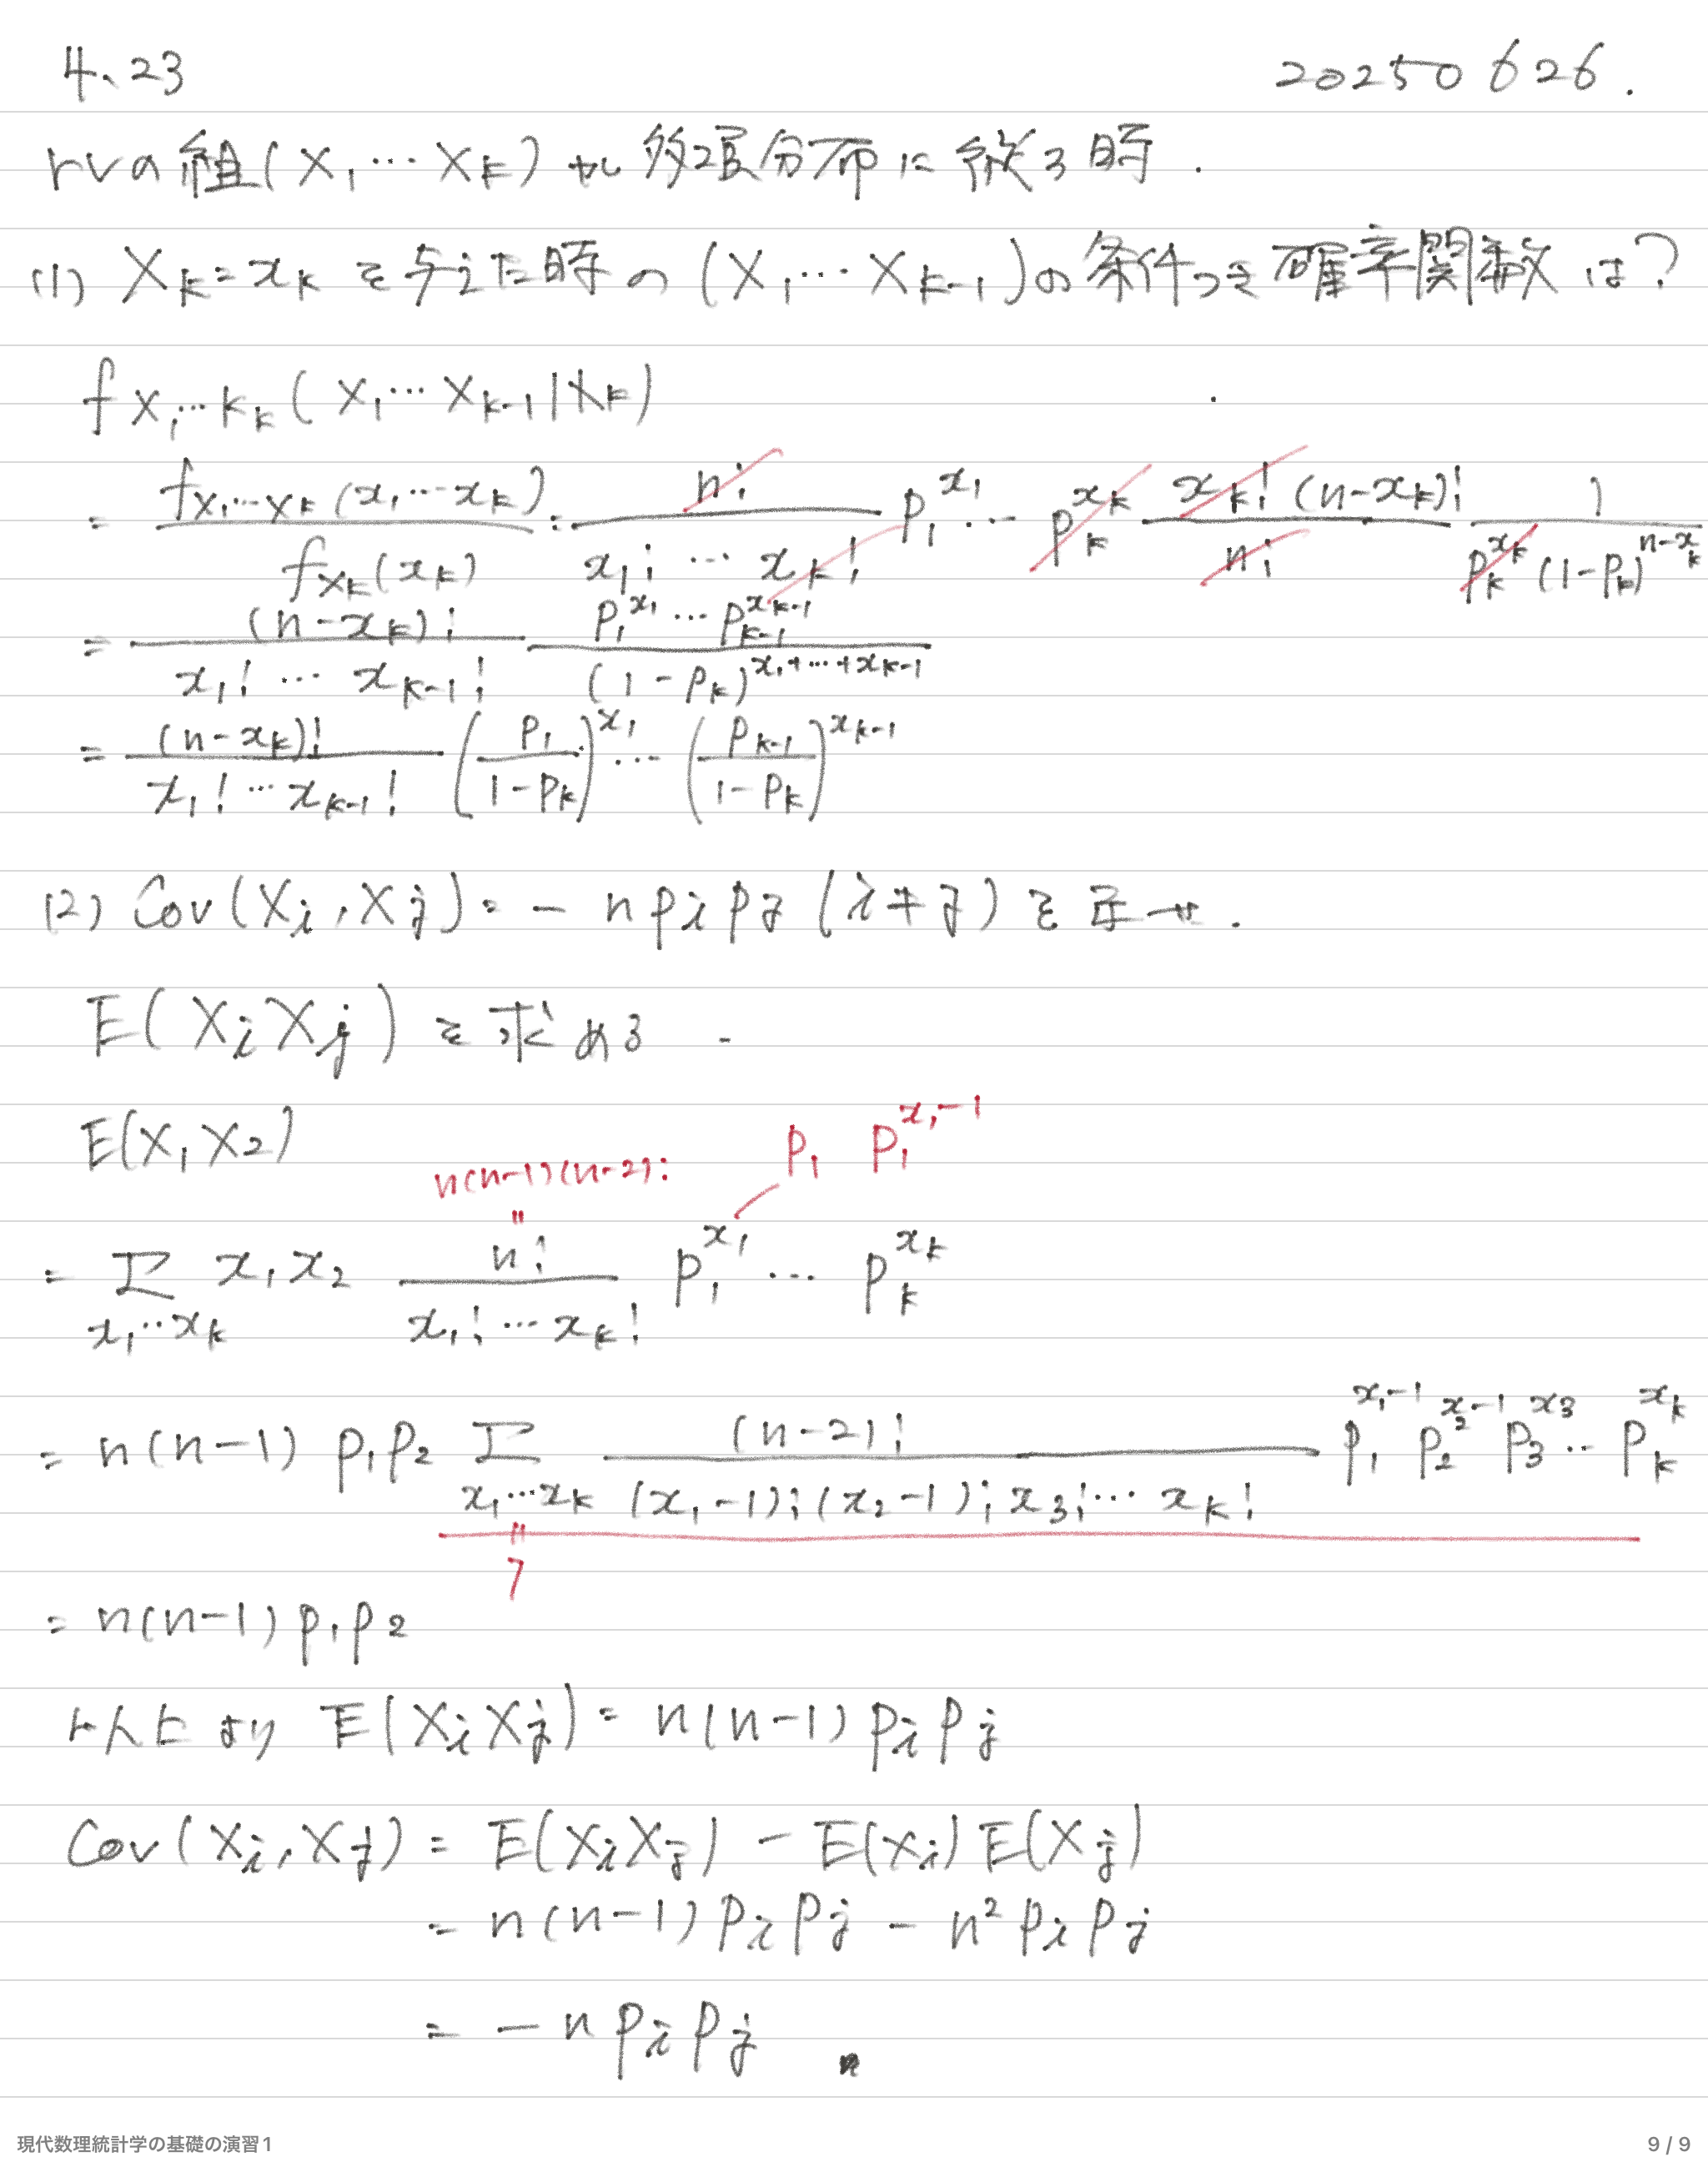 4.23 20250626.
rvの組(X₁…X_k)が多項分布に従う時.
(1) X_k=x_k を与えた時の(X₁…X_{k-1})の条件つき確率関数は?
f_{X₁…X_k}(X₁…X_{k-1}|X_k)
= f_{X₁…X_k}(x₁…x_k) / f_{X_k}(x_k) = n! / (x₁! … x_k!) p₁^{x₁} … p_k^{x_k} x_k! (n-x_k)! / n! 1 / (p_k^{x_k} (1-p_k)^{n-x_k})
= (n-x_k)! / (x₁! … x_{k-1}!) p₁^{x₁} … p_{k-1}^{x_{k-1}} / (1-p_k)^{x₁+…+x_{k-1}}
= (n-x_k)! / (x₁! … x_{k-1}!) (p₁ / (1-p_k))^{x₁} … (p_{k-1} / (1-p_k))^{x_{k-1}}
(2) Cov(X_i, X_j) = - n p_i p_j (i≠j) を示せ.
E(X_i X_j) を求める.
E(X₁X₂)
n(n-1)(n-2)! p₁ p₁^{x₁-1}
= Σ_{x₁…x_k} x₁x₂ n! / (x₁! … x_k!) p₁^{x₁} … p_k^{x_k}
= n(n-1) p₁p₂ Σ_{x₁…x_k} (n-2)! / ((x₁-1)! (x₂-1)! x₃! … x_k!) p₁^{x₁-1} p₂^{x₂-1} p₃^{x₃} … p_k^{x_k}
1
= n(n-1) p₁p₂
以上より E(X_i X_j) = n(n-1) p_i p_j
Cov(X_i, X_j) = E(X_i X_j) - E(X_i) E(X_j)
= n(n-1) p_i p_j - n² p_i p_j
= - n p_i p_j
現代数理統計学の基礎の演習1 9 / 9